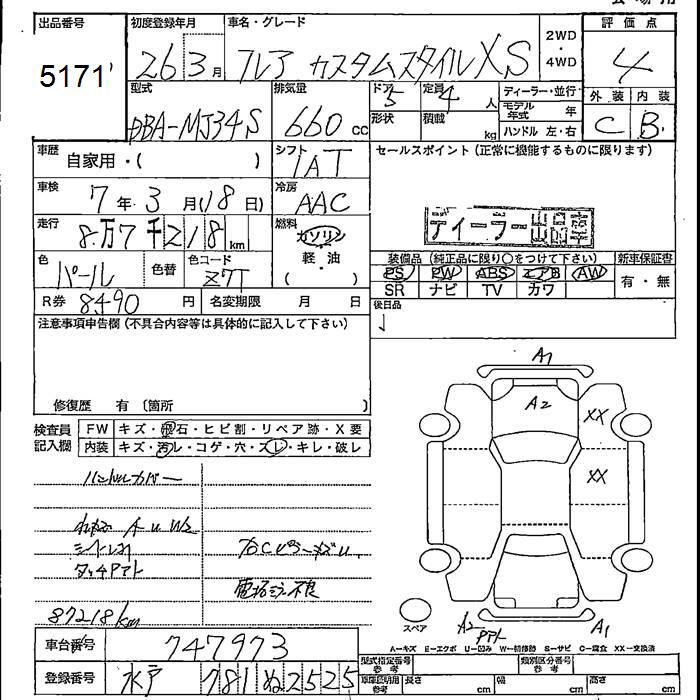 出品番号 初度登録年月 車名・グレード 2WD・4WD 評価点
5171 26年3月 フレア カスタムスタイルXS 4
型式 排気量 ドア 定員 ディーラー・並行 外装 内装
DBA-MJ34S 660cc 5 4人 モデル年式 年 C B
形状 積載 kg ハンドル 左・右
車歴 自家用・( ) シフト IAT セールスポイント(正常に機能するものに限ります)
車検 7年3月(18日) 冷房 AAC
走行 8万7千218km 燃料 ガソリン 軽・油 ( )
ディーラー出品
色 パール 色替 色コード Z7T
装備品(純正品に限り○をつけて下さい) 新車保証書
PS PW ABS エアB AW 有・無
SR ナビ TV カワ
R券 8490円 名変期限 月 日 後日品
注意事項申告欄(不具合内容等は具体的に記入して下さい)
修復歴 有〔箇所 〕
A1
A2 XX
XX
検査員記入欄 FW キズ・飛石・ヒビ割・リペア跡・X要
内装 キズ・汚レ・コゲ・穴・スレ・キレ・破レ
ハンドルカバー
A U W2
シートレス
タッチアト
電格ミラー不良
87218km
スペア
A2 アト A1
A=キズ E=エクボ U=凹み W=補修跡 S=サビ C=腐食 XX=交換済
車台番号 747973
型式指定番号 参考 類別区分番号 参考
登録番号 水戸 781 ぬ 2525
車庫証明用 参考 長さ cm 幅 cm 高さ cm